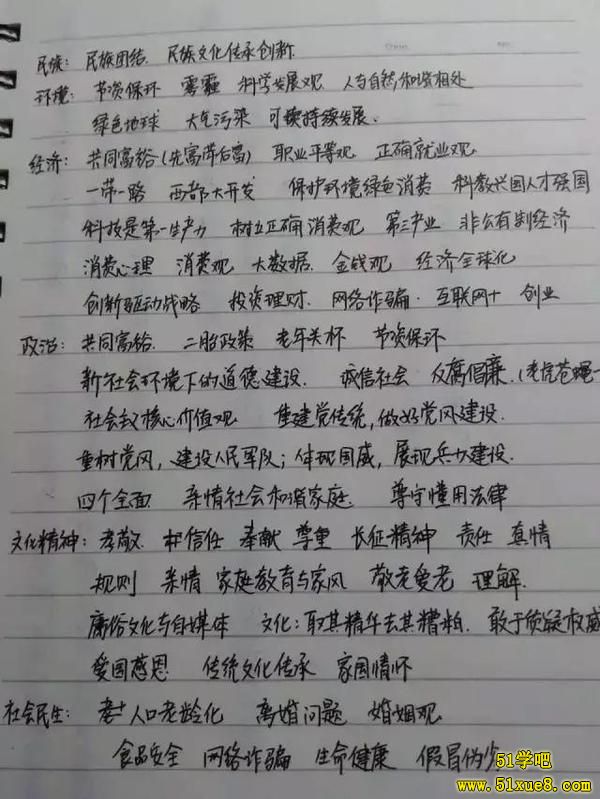 民族: 民族团结. 民族文化传承创新.
环境: 节资保环 雾霾 科学发展观. 人与自然和谐相处
绿色地球 大气污染 可续持续发展.
经济: 共同富裕(先富带后富) 职业平等观. 正确就业观.
一带一路 西部大开发 保护环境绿色消费 科教兴国人才强国
科技是第一生产力 树立正确消费观 第三产业 非公有制经济
消费心理 消费观 大数据. 金钱观 经济全球化
创新驱动战略 投资理财. 网络诈骗. 互联网十 创业
政治: 共同富裕. 二胎政策 老年关怀 节资保环
新社会环境下的道德建设. 诚信社会 反腐倡廉.(老虎苍蝇一
社会主义核心价值观 重建党传统,做好党风建设.
重树党风,建设人民军队;体现国威,展现兵力建设.
四个全面. 亲情社会和谐家庭. 尊守懂用法律
文化精神: 孝敬. 信任 奉献 尊重 长征精神 责任 真情
规则 亲情 家庭教育与家风 敬老爱老 理解.
庸俗文化与自媒体 文化:取其精华去其糟粕. 敢于质疑权威
爱国感恩 传统文化传承 家国情怀
社会民生: 人口老龄化 离婚问题 婚姻观
食品安全 网络诈骗 生命健康 假冒伪劣
51学吧
www.51xue8.com